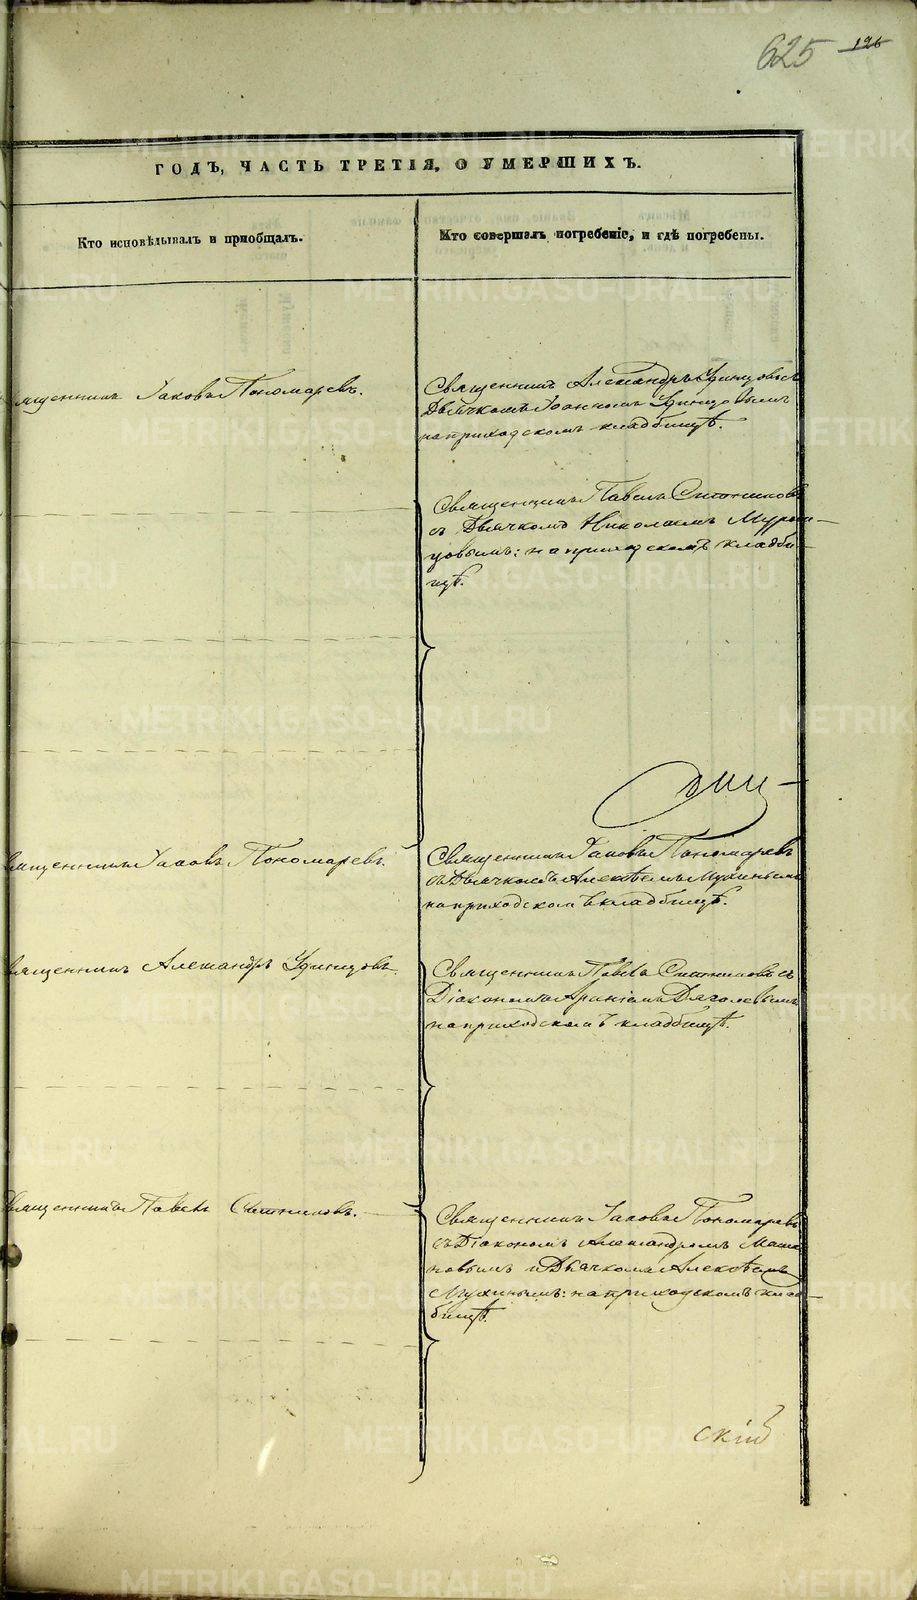 625 126
ГОДЪ, ЧАСТЬ ТРЕТІЯ, О УМЕРШИХЪ.
Кто исповѣдывалъ и пріобщалъ.
Кто совершалъ погребеніе, и гдѣ погребены.
Іаковъ Пономаревъ.
Священникъ Александръ Удинцовъ съ
Дьячкомъ Іоанномъ Удинцовымъ
на приходскомъ кладбищѣ.
Священникъ Павелъ Ситниковъ
съ Дьячкомъ Николаемъ
на приходскомъ кладби-
щѣ.
Священникъ Іаковъ Пономаревъ.
Священникъ Іаковъ Пономаревъ
съ Дьячкомъ Алексѣемъ Мухинымъ
на приходскомъ кладбищѣ.
Священникъ Александръ Удинцовъ.
Священникъ Павелъ Ситниковъ съ
Діакономъ
на приходскомъ кладбищѣ.
Священникъ Павелъ Ситниковъ.
Священникъ Іаковъ Пономаревъ
съ Діакономъ Александромъ
и Дьячкомъ Алексѣемъ
Мухинымъ: на приходскомъ клад-
бищѣ.
скій
METRIKI.GASO-URAL.RU